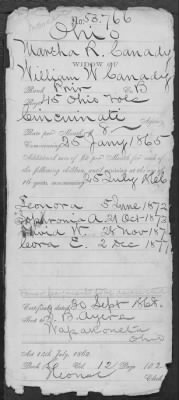 No. 53,766
Ohio
Martha R. Canady
WIDOW OF
William W. Canady
Rank Priv Co. B
Regt 45 Ohio Vols
Cincinnati
Agency
Rate per Month $ 8
Commencing 25 Jany 1865
Additional sum of $2 per Month for each of
the following children, until arriving at the age of
16 years, commencing 25 July 1866
Leonora 5 June 1872
Sophronia A. 21 Oct 1873
W. 28 Nov 187
Cora E. 2 Dec 187
Certificate dated 20 Sept 1868
Sent to B Ayers
Wapakoneta
Ohio
Act 14th July, 1862.
Book Vol. 12 Page 102
Clerk